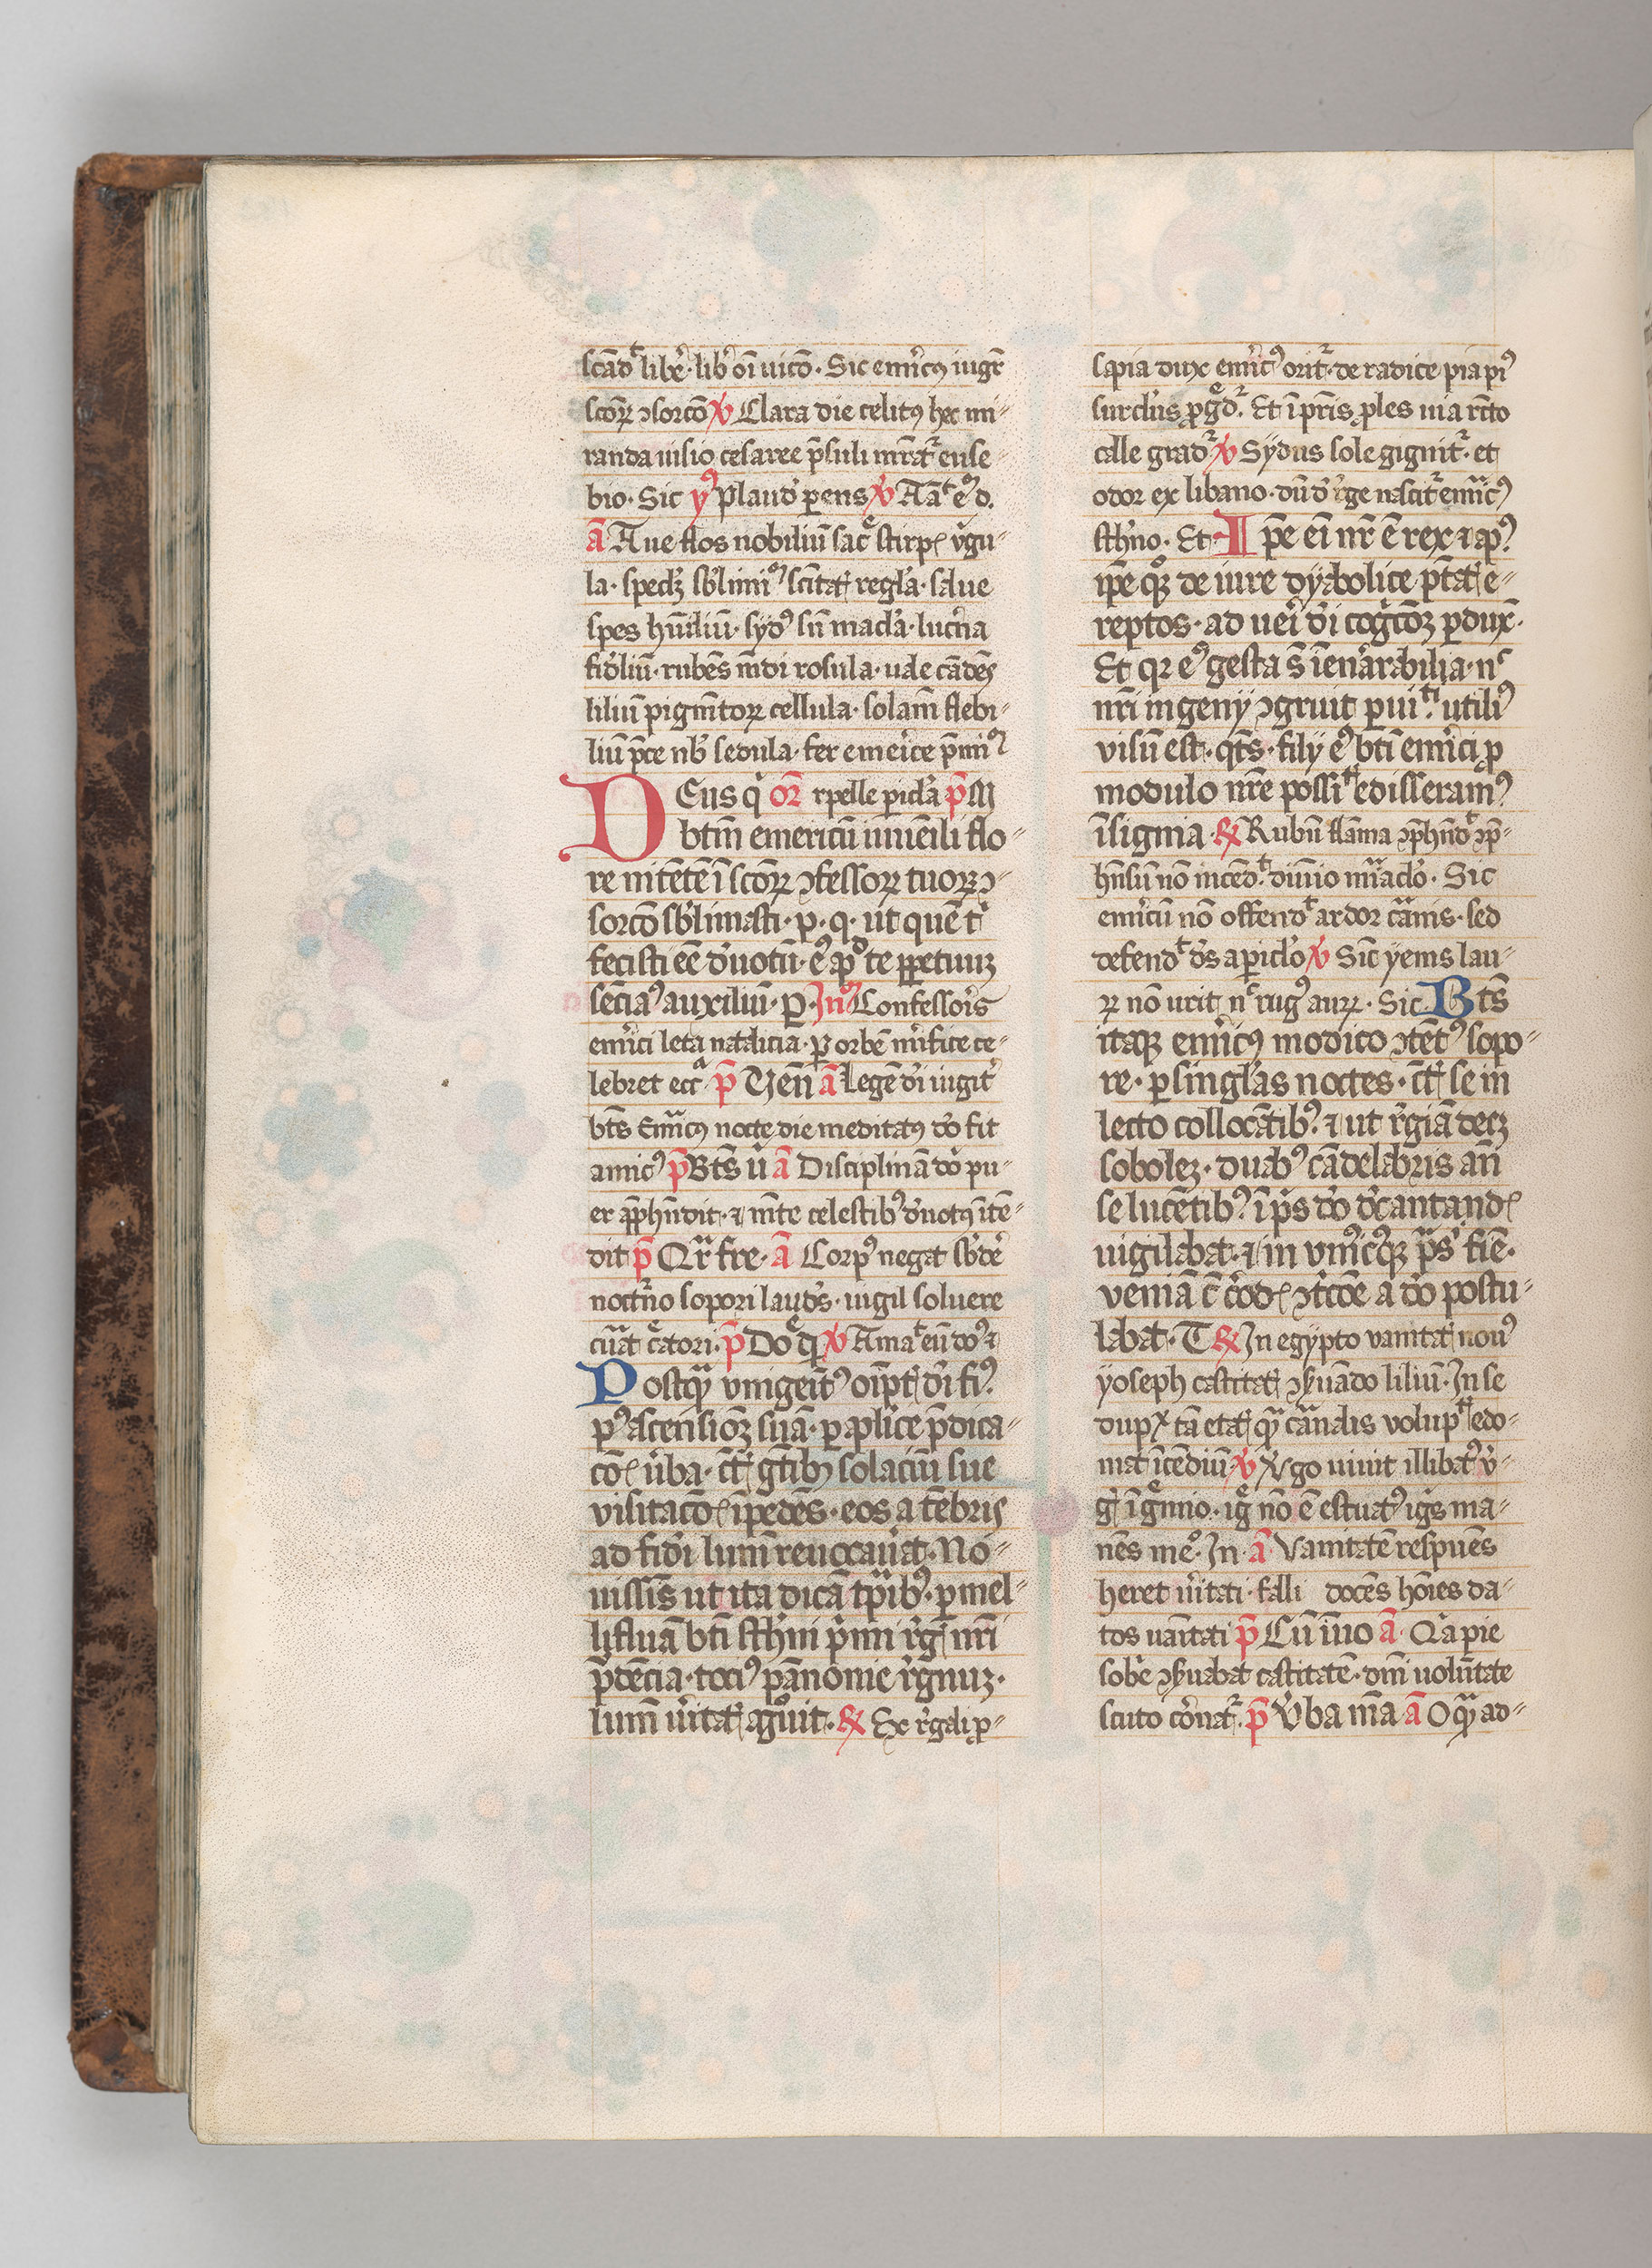 scād libe· lib oī uico · Sic emīcꝯ iugr
scoꝝ ꝯsorcō ℣ Clara die celitꝯ hec mi-
randa uisio cesaree p̄suli mr̄at euse-
bio · Sic ỹ Plaud pens ℣ Aāt eꝰ d.
ā Aue flos nobiliū sac stirpꝭ v̓gu-
la · specłꝫ sb̓limiꝰ scītatꝭ regl̓a · salue
spes hūiliū · sydꝰ sn̄ macl̓a · luc̓na
fid̓liū · rubēs mūdi rosula · uale cādēs
liliū pigmētoꝝ cellula · solam̄ flebi-
liū p̄ce nb̓ sedula · fer emeīce p̄mi
DEus q̓ or̄ rpelle picl̓a p̄ M
btm̄ emericū iuuēili flo-
re nitētē ī scōꝝ ꝯfessoꝝ tuoꝝ ꝯ-
sorcō sb̓limasti · p · q · ut quē t̓
fecisti eē d̓uotū · eꝰ ap̓ te ꝑpetuuꝫ
senciaꝰ auxiliū · ꝑ · Jn̄ Confessoris
emīci leta natalicia · ꝑ orbē mīfice ce-
lebret ecca p̄ Ven̄ ā Lege dī iugit̓
bt̄s Emīcꝯ nocte die meditatꝯ dō fit
amicꝰ p̄ Bt̄s ū ā Disciplinā dō pu-
er apphn̄dit · ⁊ mīte celestibꝰ d̓uotꝯ ītē-
dit p̄ Qr̄ fre · ā Corpꝰ negat sb̓de
noctr̄no sopori laudꝭ · uigil soluere
cūat c̄atori · p̄ Do q̓ ℣ Amat eū dōꝰ ⁊
Postqͣ vnigeīt oīptꝭ dī fiꝰ
pꝰ ascensioꝫ suā · ꝑ aplīce p̄dica-
cōꝭ ūba · cūtꝭ gētibꝫ solaciū sue
visitacōꝭ īpēdēs · eos a tēbris
ad fidi lum̄ reuocau̓at · No-
uissīs ut ita dicā tp̄ibꝰ · ꝑ mel-
lifluā btī sth̓ni p̓mi r̓gꝭ nr̄i
p̄dēcia · tociꝰ pānonie r̓gnuꝫ ·
lum̄ ūitatꝭ agōuit · ℟ Ex r̓gali ꝓ-
sapia dux emīcꝰ orit · de radice pia pi
surcl̓us ꝓgd̓ · Et ī pr̄is ꝓles uia rc̄to
calle grad̓ ℣ Sydus sole gignit · et
odor ex libano · dū d̓ r̓ge nascit emīcꝰ
sth̓no · Et Ipē eī nr̄ ē rex ⁊ apꝰ
ipē qꝫ de iure dyabolice ptātꝭ e-
reptos · ad ueī dī cogc̄oꝫ ꝑdux̄ ·
Et qr eꝰ gesta s̄ īenarrabilia · nc
nr̄i ingenij ꝯgruit puiti · utiliꝰ
visū est · qt̄s · filij eꝰ btī emīci ꝓ
modulo nr̄e possitꝭ edisseramꝰ
īsignia · ℟ Rubū flāma ꝯp̄hn̄d ꝯp̄-
hn̄sū nō incēdt · diuīo mīaclo · Sic
emīcū nō offendt ardor cānis · sed
defendt ds̄ a picl̓o ℣ Sic̄ yems lau-
ꝝ nō urit nc rugꝰ auꝝ · Sic Bt̄s
itaqꝫ emīcꝯ modico ꝯtētꝰ sopo-
re · ꝑ singl̓as noctes · cūtꝭ se in
lecto collocātibꝰ · ⁊ ut r̓giā decꝫ
sobolez · duabꝰ cādelabris an̄
se lucētibꝰ īps̄ dō d̓cantandꝭ
uigilabat · ⁊ in vnīcꝯqꝫ ps̄ fiē ·
veniā c̄ cōdꝭ ꝯtc̄oe a dō postu-
labat · T ℟ Jn egypto vanitatꝭ nouꝰ
yoseph castitatꝭ ꝯs̓uādo liliū · Jn se
dupx tā etatꝭ qͣ cānalis volup edo-
mat īcēdiū ℣ Vgo uiuit illibatꝰ v̓-
g ī gmio · ig nō ē estuatꝰ igs ma-
nēs meo · Jn · ā Vanitatē respuēs
heret ūitati · falli docēs hoīes da-
tos uāitati p̄ Cū īuo ā · Qͣ pie
sobe ꝯs̓uabat castitatē · dnī uolūtate
scuto cōnat · p̄ V̓ba mā ā O qͣ ad-